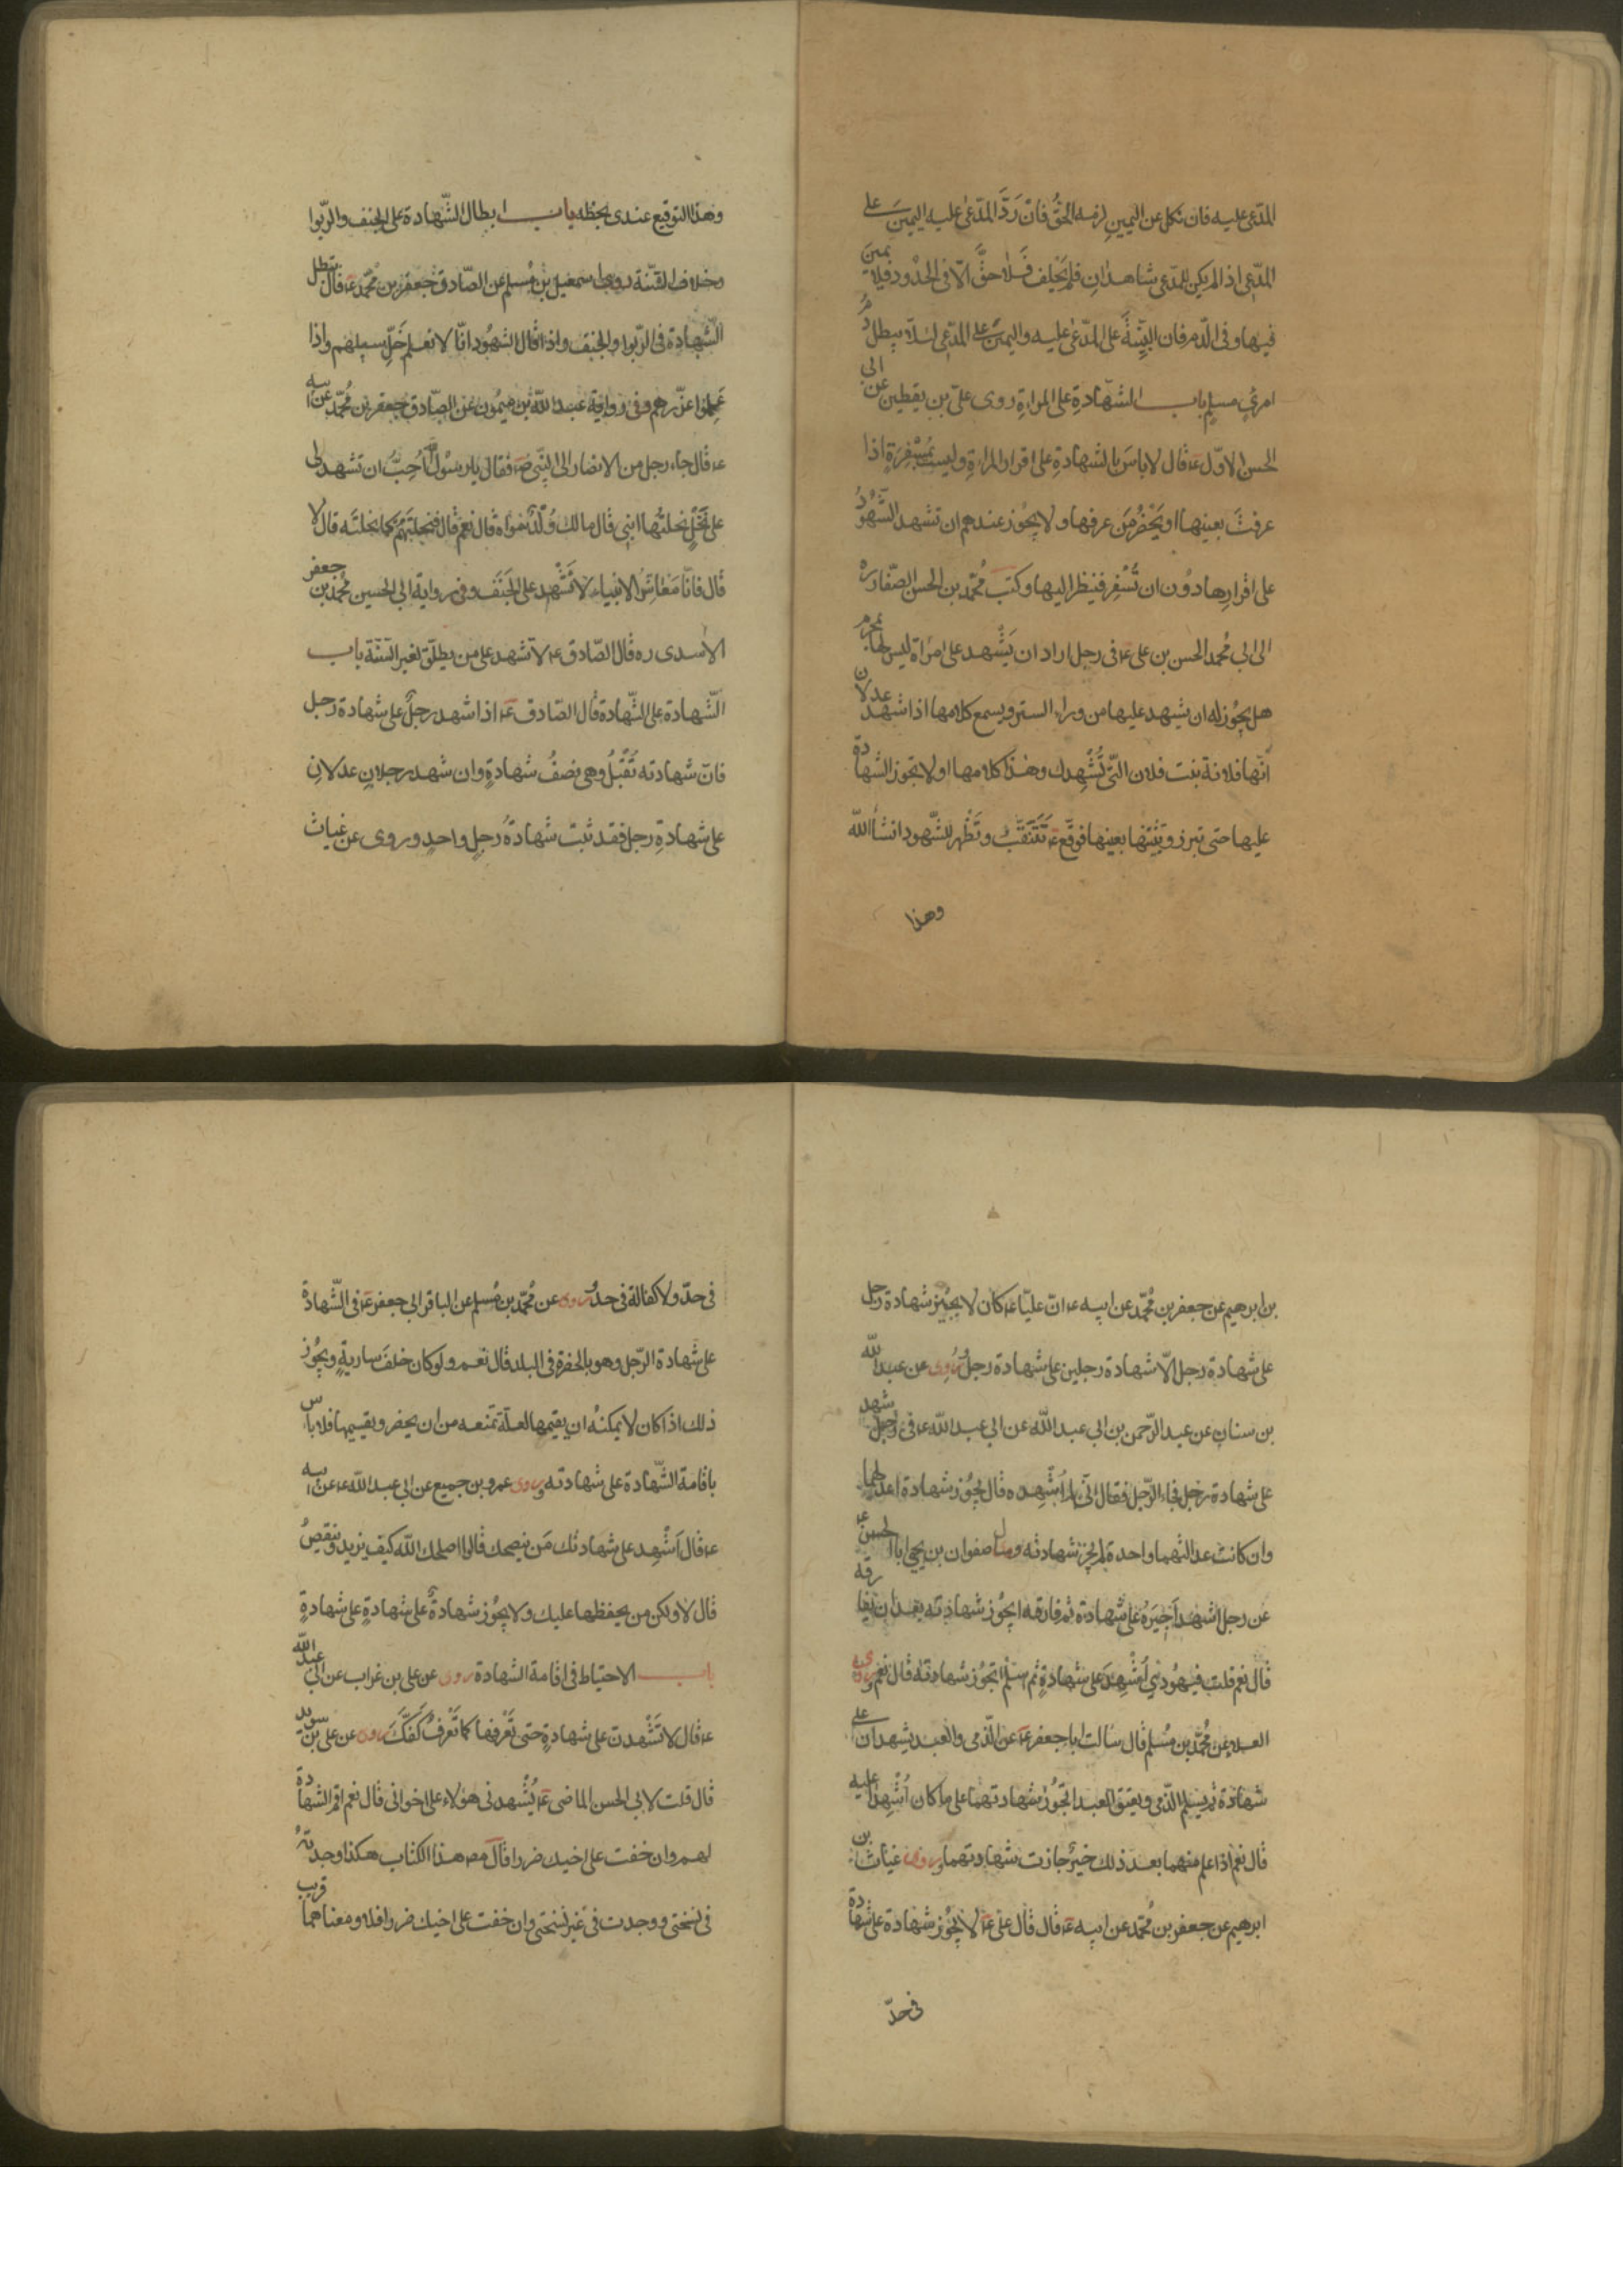 المدّعى عليه فان نكل عن اليمين لزمه الحقُّ فان رَدَّ المدّعى عليه اليمينَ على
المدّعى اذا لم يكن للمدّعى شاهدانِ فلم يَحْلِف فَلا حقَّ الّا فى الحدود فلا يمينَ
فيها وفى الدّم فان البيّنةَ على المدّعى عليه واليمينَ على المدّعى لئلّا يبطل دمُ
امرئٍ مسلمٍ باب الشهادةِ على المراةِ روى علىّ بن يقطين عن ابى
الحسن الاوّل ع قال لا باسَ بالشهادةِ على اقرار المراةِ وليست بمُسْفِرَةٍ اذا
عرفتَ بعينها او يَحْضُرُ مَن عرفها ولا يجُوز عندهم ان تشهد الشّهُودُ
على اقرارِها دوُن ان تُسْفِر فينظر اليها وكتبَ مُحمّد بن الحسن الصّفار ره
الى ابى مُحمد الحسن بن على ع فى رجل اراد ان يَشْهد على امراة ليس لها بمحرم
هل يجُوز له ان يشهد عليها من وراء الستر ويسمع كلامها اذا شهد عدلان
انّها فلانة بنت فلان الّتى تُشْهِدك وهذا كلامها او لا يجوز الشهادة
عليها حتى تبرز وتثبتها بعينها فوقّع ع تَتَنَقَّبُ وتَظْهر للشّهود انشأالله
وهذا
وهذا التوقيع عندى بخطّه باب ابطال الشّهادة على الجنف والرّبوا
وخلاف السّنّة روى اسمعيل بن مُسلم عن الصّادق جعفر بن مُحمّد ع قال تبطل
الشّهادة فى الرّبوا والجنف واذا قال الشهُود انّا لا نعلم خَلِّ سبيلهم واذا
عَلِموا عزّرهم وفى رواية عبد الله بن ميمُون عن الصّادق جعفر بن مُحمّد عن ابيه
ع قال جاء رجل من الانصار الى النّبى ص فقال يا رسُول اللّه اُحِبُّ ان تشهد لى
على نَخْلٍ نحلتُها ابنى قال ما لك وُلْدٌ سواه قال نعم قال فنحلتَهُم كما نحلتَه قال لا
قال فانّا مَعَاشَرُ الانبياء لا نَشْهد على الجَنَف وفى رواية ابى الحسين مُحمّد بن جعفر
الاسدى ره قال الصّادق ع لا تشهد على من يطلّق لغير السّنّة باب
الشّهادة على الشّهادة قال الصّادق ع اذا شهد رجلٌ على شهادة رجل
فانّ شهادته تُقْبَلُ وهى نصفُ شهادةٍ وان شهد رجلانِ عدلانِ
على شهادةِ رجل فقد ثبت شهادةُ رجلٍ واحدٍ وروى عن غياث
بن ابرهيم عن جعفر بن مُحمّد عن ابيه ع انّ عليّا ع كان لا يجُيز شهادة رجل
على شهادة رجل الّا شهادة رجلين على شهادة رجل ورُوِى عن عبدالله
بن سنان عن عبد الرّحمن بن ابى عبد الله عن ابى عبد الله ع فى رجل شهد
على شهادة رجل فجاء الرّجل فقال انّى لم اُشْهِده قال يجُوز شهادة اعدلهما
وان كانت عدالتهما واحدة لم يجز شهادته وسال صفوان بن يحيى ابا الحسن ع
عن رجل اشهد اَجِيَرهُ على شهادة ثم فارقه ايجُوز شهادته بعد ان يفارقه
قال نعم قلت فيهُودىّ اُشْهِدَ على شهادةٍ ثم اسلم اتجُوز شهادته قال نعم وروى
العلاء عن مُحمّد بن مُسلم قال سالت ابا جعفر ع عن الذّمى والعبد يشهدان على
شهادة ثم يسلم الذّمى ويعتق العبد اتجُوز شهادتهما على ما كان اُشْهِدا عليه
قال نعم اذا علم منهما بعد ذلك خيرٌ جازت شهادتهما وروى غياث بن
ابرهيم عن جعفر بن مُحمّد عن ابيه ع قال قال علىّ ع لا يجُوز شهادة على شهادة
فى حدّ
فى حدّ ولا كفالة فى حدّ وروى عن مُحمّد بن مُسلم عن الباقر ابى جعفر ع فى الشّهادة
على شهادة الرّجل وهو بالحضرة فى البلد قال نعم ولو كان خلفَ ساريةٍ ويجُوز
ذلك اذا كان لا يمكنُه ان يقيمها لعلّة تمنعه من ان يحضر ويقيمها فلا باس
باقامة الشّهادة على شهادته وروى عمرو بن جميع عن ابى عبد الله ع عن ابيه
ع قال اَشْهِد على شهادتك مَن ينصحك قالوا اصلحك الله كيف يزيد وينقصُ
قال لا ولكن من يحفظها عليك ولا يجُوز شهادةٌ على شهادةٍ على شهادةٍ
باب الاحتياط فى اقامة الشهادة روى عن على بن غراب عن ابى عبدالله
ع قال لا تَشْهدنّ على شهادةٍ حتى تَعْرفها كما تَعْرفُ كفَّكَ وروى عن علىّ بن سويد
قال قلت لابى الحسن الماضى ع يُشْهدنى هؤلاء على اخوانى قال نعم اقم الشهادة
لهم وان خفت على اخيك ضررا قال مص هذا الكتاب هكذا وجدتُه
فى نسختى ووجدت فى غير نسختى وان خفت على اخيك ضررا فلا ومعناهما قريب